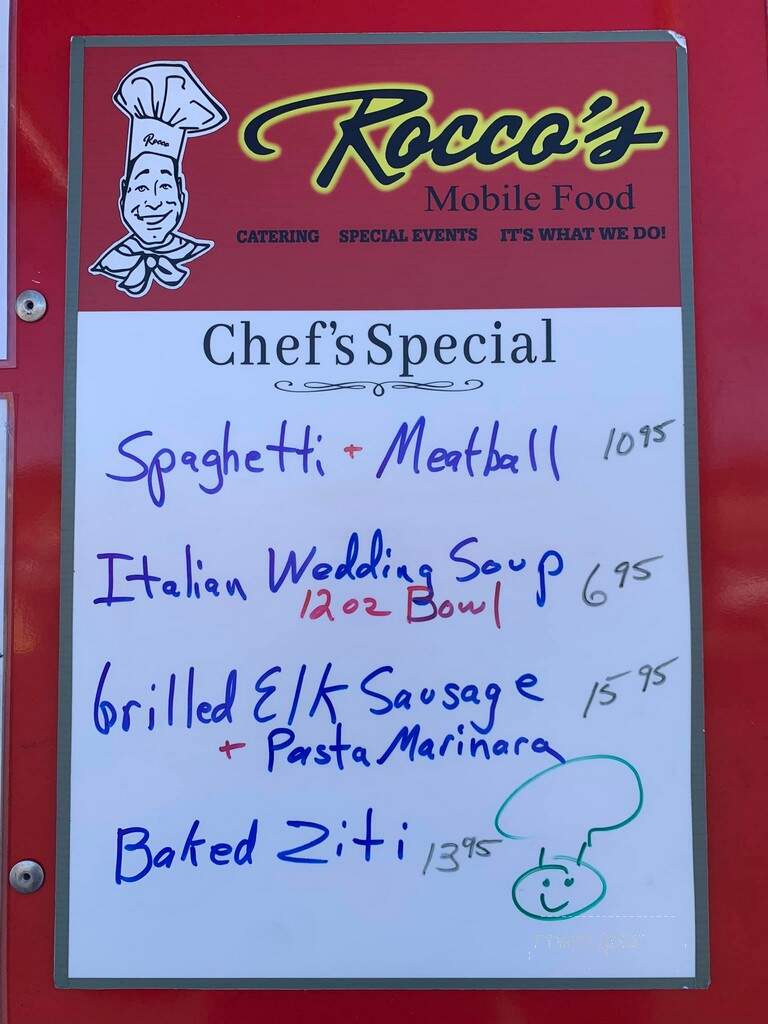 Rocco
Rocco's
Mobile Food
CATERING SPECIAL EVENTS IT'S WHAT WE DO!
Chef's Special
Spaghetti + Meatball 10 95
Italian Wedding Soup 6 95
12 oz Bowl
Grilled Elk Sausage 15 95
+ Pasta Marinara
Baked Ziti 13 95